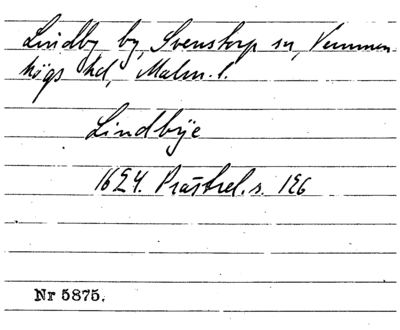 Lindby by, Svenstorp sn, Vemmen-
högs hd, Malm. l.
Lindbÿe
1624. Prästrel. s. 126
Nr 5875.